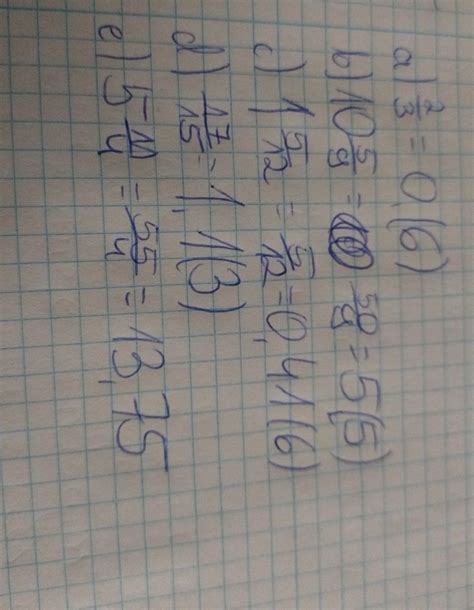 a) 2/3 = 0,(6)
b) 10 5/9 = 50/9 = 5(5)
c) 1 5/12 = 5/12 = 0,41(6)
d) 17/15 = 1,1(3)
e) 5 11/4 = 55/4 = 13,75